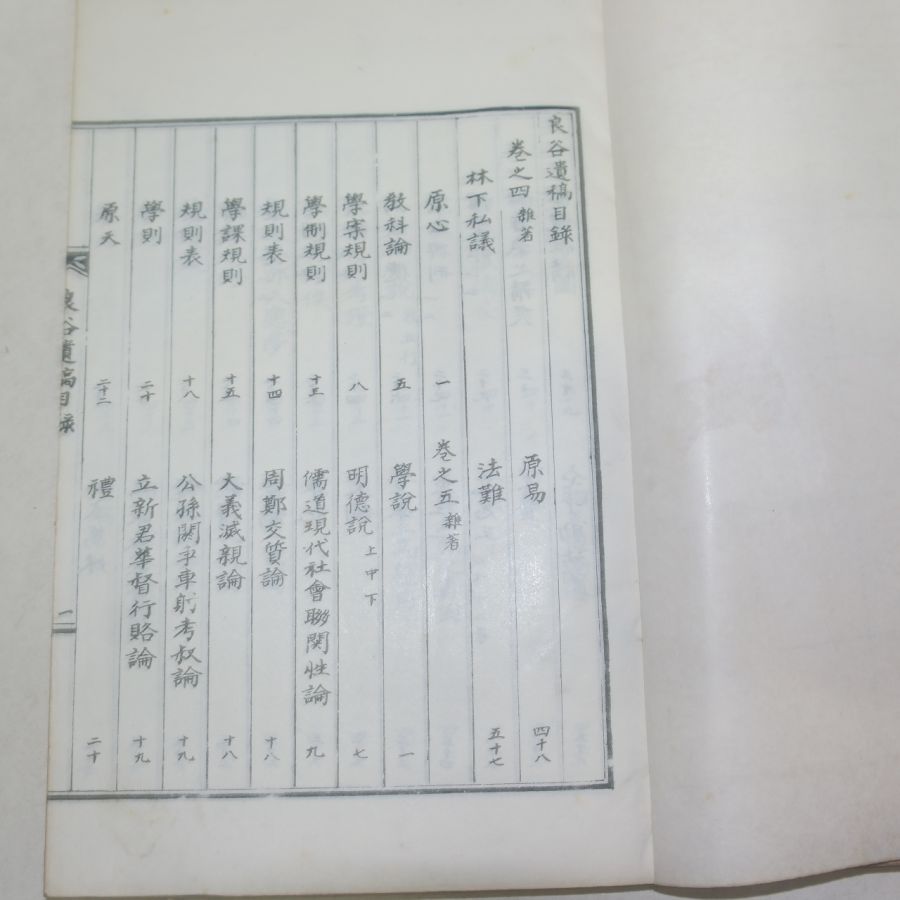 良谷遺稿目錄
卷之四 雜著
林下私議
原心 一
教科論 五
學案規則 八
學制規則 十三
規則表 十四
學課規則 十五
規則表 十八
學則 二十
原天 二十二
原易 四十八
法難 五十七
卷之五 雜著
學說 一
明德說 上中下 七
儒道現代社會聯関性論 九
周鄭交質論 十八
大義滅親論 十八
公孫閼爭車射考叔論 十九
立新君華督行賂論 十九
禮 二十
良谷遺稿目錄 一